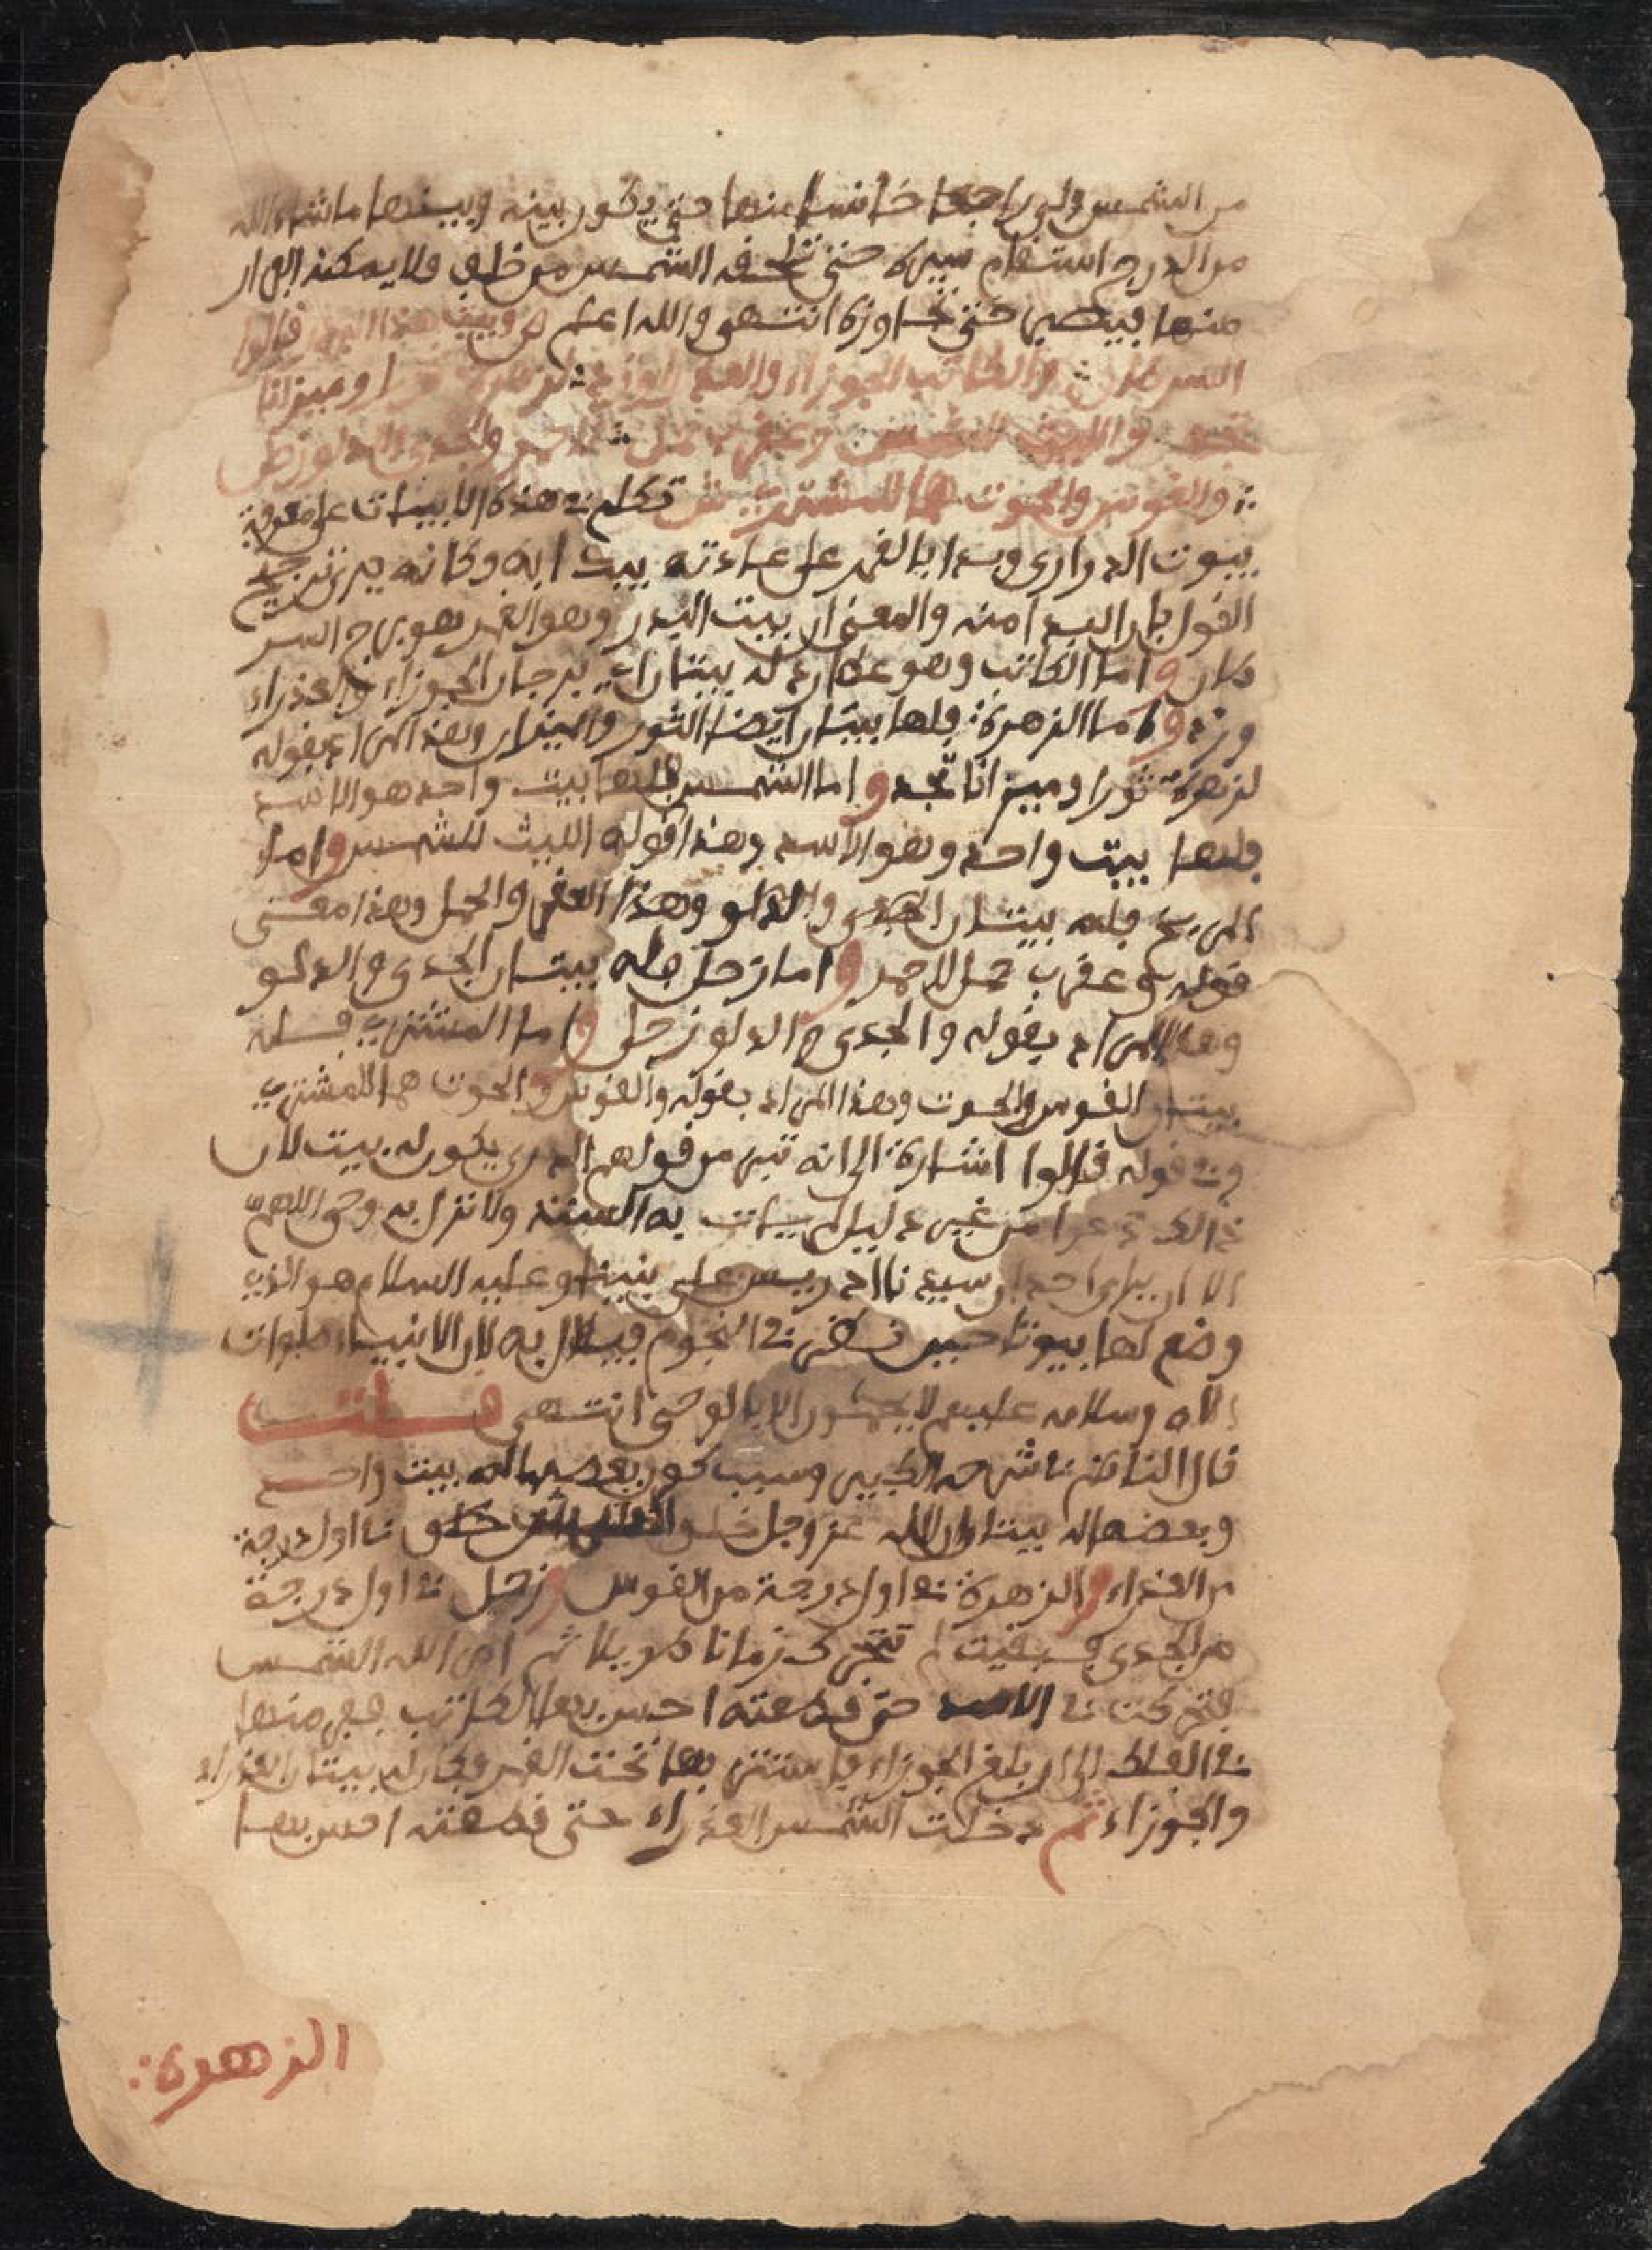 من الشمس ولى راجعا خانسا عنها حتى يكون بينه وبينها ما شاء الله
من الدرج استقام سيره حتى تلحقه الشمس من خلفه ولا يمكنه الفرار
منها فيصير حتى تجاوزه انتهى والله اعلم ص وبيت هذا البدر قالوا
السرطان والكاتب الجوزاء والعذراء وزد لزهرة ثورا وميزانا
تجد والليث للشمس وعقرب حمل للاحمر والجدي والدلو زحل
والقوس والحوت هما للمشتري ش تكلم في هذه الابيات على معرفة
بيوت الدراري وبدا بالقمر على عادته يبدا به وكانه يرى ترجيح
القول بان البدا منه والمعنى ان بيت البدر وهو القمر هو برج السر
طان واما الكاتب وهو عطارد له بيتان اي برجان الجوزاء والعذراء
وزد واما الزهرة فلها بيتان ايضا الثور والميزان وهذا المراد بقوله
لزهرة ثورا وميزانا تجد واما الشمس فلها بيت واحد هو الاسد
فلها بيت واحد وهو الاسد وهذا قوله الليث للشمس واما
المريخ فله بيتان الجدي والدلو وهذا العقرب والحمل وهذا معنى
قوله وعقرب حمل للاحمر واما زحل فله بيتان الجدي والدلو
وهذا المراد بقوله والجدي والدلو زحل واما المشتري فله
بيتان القوس والحوت وهذا المراد بقوله والقوس والحوت هما للمشتري
وفي قوله قالوا اشارة الى انه تبرى من قولهم الدري يكون له بيت لان
ذالك دعوا من غير دليل لم يات به السنة ولا نزل به وحي اللهم
الا ان سيدنا ادريس على نبينا وعليه السلام هو الذي
وضع لها بيوتا حين نظر في النجوم فيقال به لان الانبياء صلوات
الله وسلامه عليهم لا يحكمون الا بالوحي انتهى قلت
قال الناظم في شرحه الكبير وسبب كون بعضها له بيت واحد
وبعضها له بيتان ان الله عز وجل خلق خلق في اول درجة
من العذراء والزهرة في اول درجة من القوس وزحل في اول درجة
من الجدي فبقيت لم تتحرك زمانا طويلا ثم امر الله الشمس
فتحركت في الاسد حتى قطعته احس بها الكاتب ففر منها
في الفلك الى ان بلغ الجوزاء فاستتر بها تحت القمر فكان له بيتان العذراء
والجوزاء ثم دخلت الشمس العذراء حتى قطعته احس بها
الزهرة